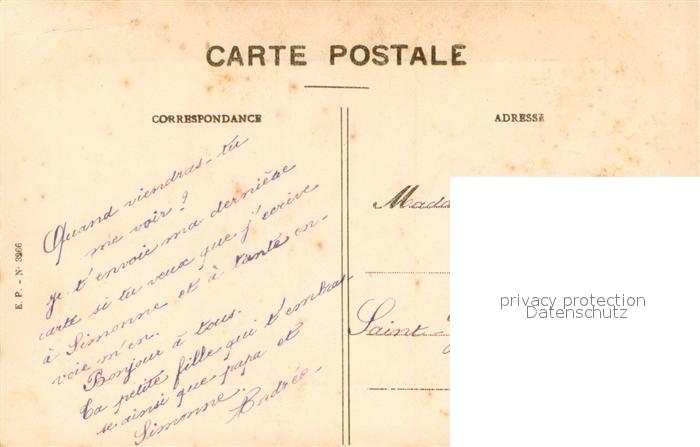 CARTE POSTALE
CORRESPONDANCE
ADRESSE
Quand viendras-tu
me voir?
je t'envoie ma dernière
carte si tu veux que j'écrive
à Simonne et à tante en-
voie m'en.
Bonjour à tous.
Ta petite fille qui t'embras-
se ainsi que papa et
Simonne. Andrée-
Mada
Saint-
E. P. - No 3966
privacy protection
Datenschutz